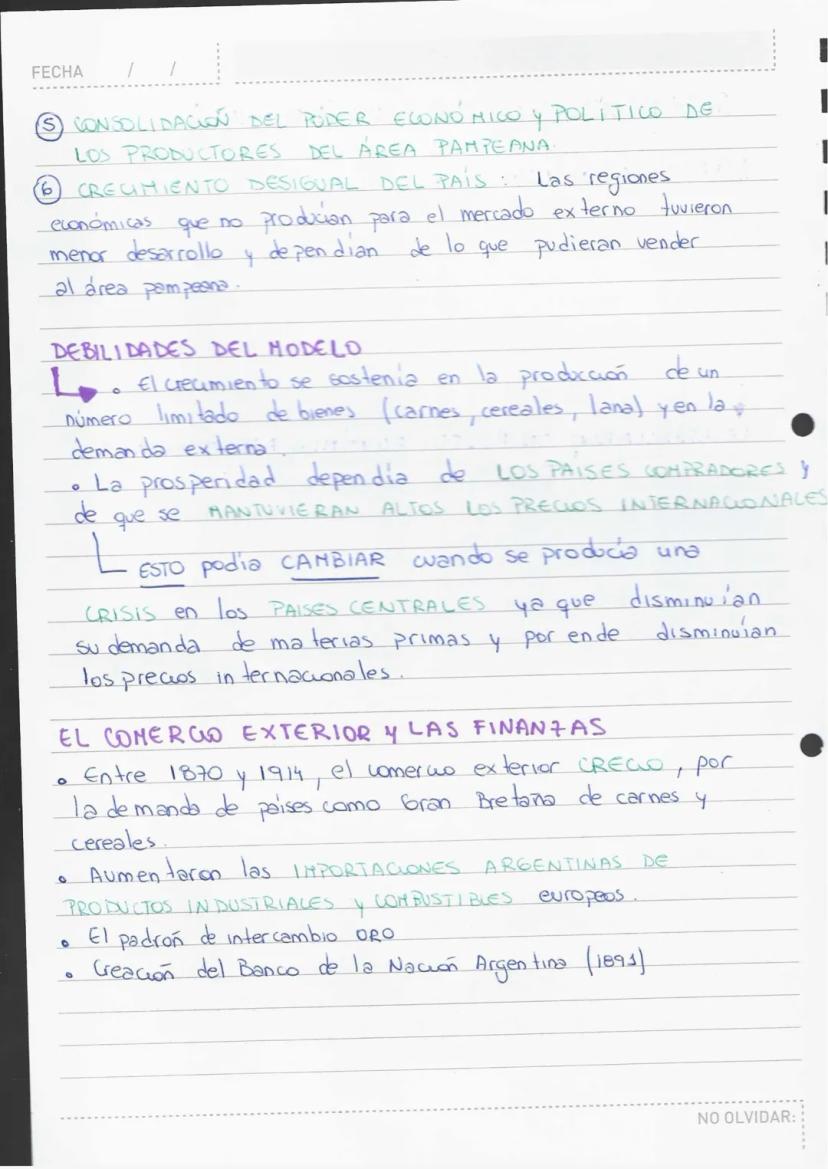 FECHA / /
⑤ CONSOLIDACIÓN DEL PODER ECONÓMICO y POLÍTICO DE
LOS PRODUCTORES DEL ÁREA PAMPEANA.
⑥ CRECIMIENTO DESIGUAL DEL PAÍS: Las regiones
económicas que no producían para el mercado externo tuvieron
menor desarrollo y dependían de lo que pudieran vender
al área pampeana.
DEBILIDADES DEL MODELO
• El crecimiento se sostenía en la producción de un
número limitado de bienes (carnes, cereales, lana) y en la
demanda externa.
• La prosperidad dependía de LOS PAÍSES COMPRADORES y
de que se MANTUVIERAN ALTOS LOS PRECIOS INTERNACIONALES
ESTO podía CAMBIAR cuando se producía una
CRISIS en los PAISES CENTRALES ya que disminuían
su demanda de materias primas y por ende disminuían
los precios internacionales.
EL COMERCIO EXTERIOR y LAS FINANZAS
• Entre 1870 y 1914, el comercio exterior CRECIO, por
la demanda de países como Gran Bretaña de carnes y
cereales.
• Aumentaron las IMPORTACIONES ARGENTINAS DE
PRODUCTOS INDUSTRIALES y COMBUSTIBLES europeos.
• El padrón de intercambio ORO
• Creación del Banco de la Nación Argentina (1891)
NO OLVIDAR: